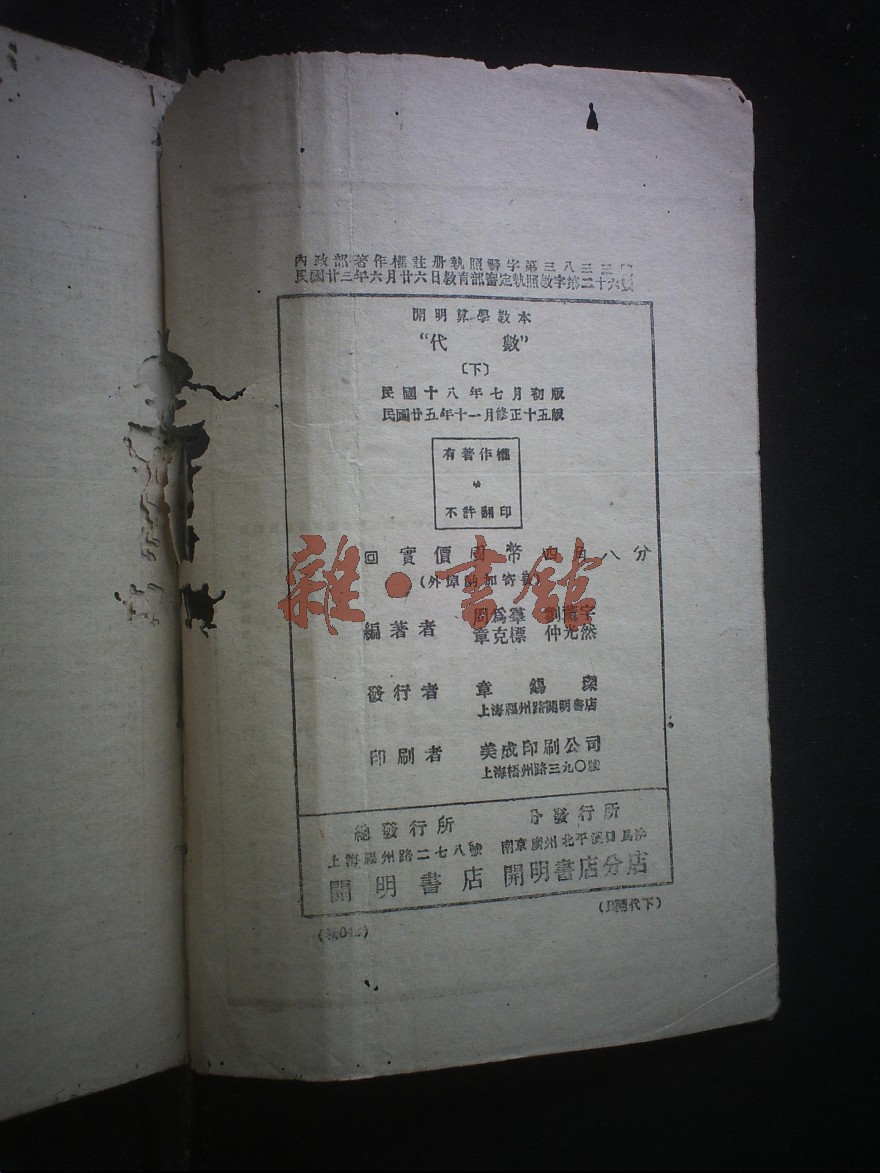 內政部著作權註册執照警字第三八三三
民國廿三年六月廿六日教育部審定執照教字第二十六號
開明算學教本
“代數”
〔下〕
民國十八年七月初版
民國廿五年十一月修正十五版
有著作權
不許翻印
實價國幣四角八分
(外埠酌加寄費)
編著者
周爲羣 劉薰宇
章克標 仲光然
發行者 章錫琛
上海福州路開明書店
印刷者 美成印刷公司
上海梧州路三九〇號
總發行所
上海福州路二七八號
開明書店
分發行所
南京廣州北平漢口長沙
開明書店分店
代下)
雜·書館